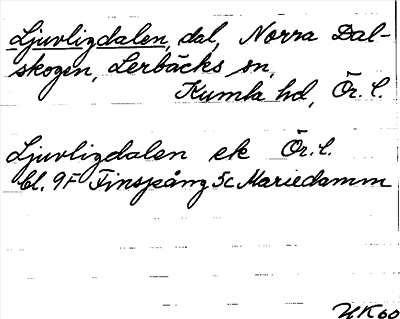 Ljuvligdalen, dal, Norra Dal-
skogen, Lerbäcks sn,
Kumla hd, Ör. l.
Ljuvligdalen ek Ör. l.
bl. 9F Finspång 5c Mariedamm
HK 60